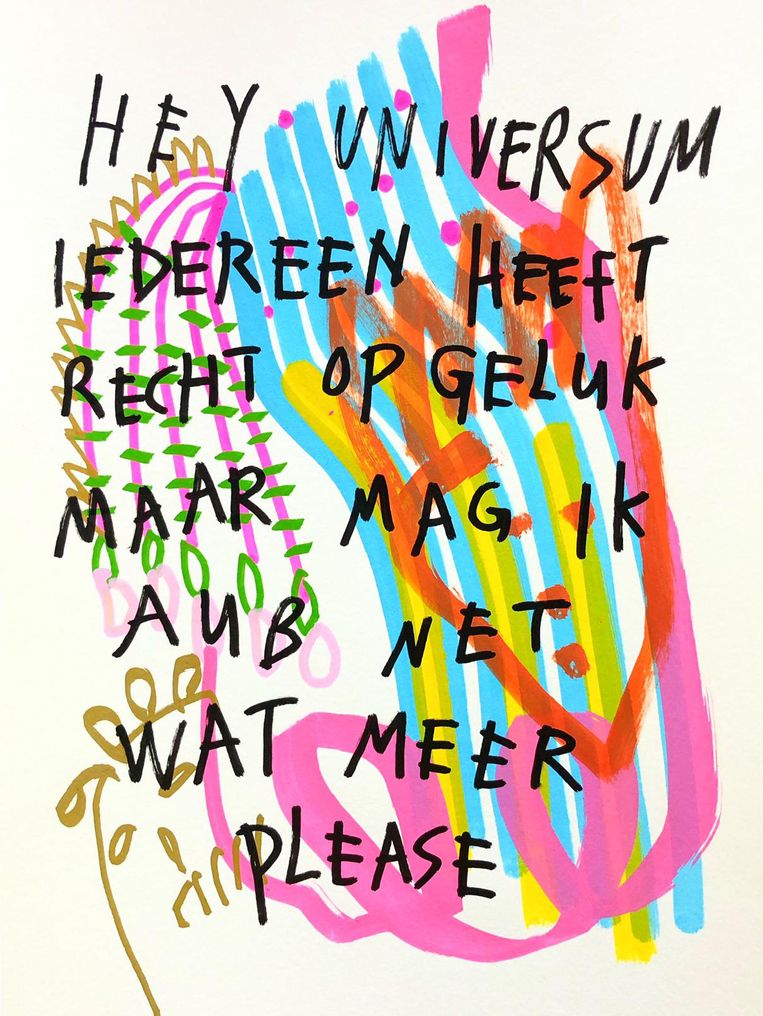 HEY UNIVERSUM
IEDEREEN HEEFT
RECHT OP GELUK
MAAR MAG IK
AUB NET
WAT MEER
PLEASE